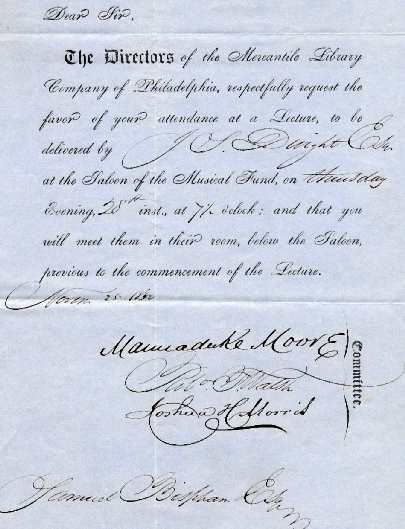 Dear Sir,
The Directors of the Mercantile Library
Company of Philadelphia, respectfully request the
favor of your attendance at a Lecture, to be
delivered by J S Dwight Esq.
at the Saloon of the Musical Fund, on Thursday
Evening, inst., at 7½ o'clock; and that you
will meet them in their room, below the Saloon,
previous to the commencement of the Lecture.
Marmaduke Moore
Joshua H Morris
Committee.
Samuel Bispham Esq